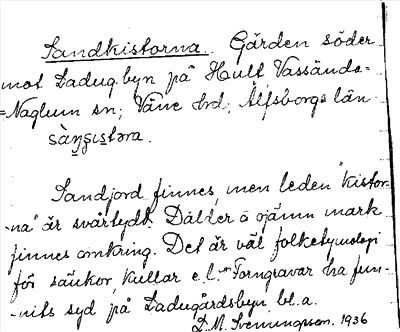 Sandkistorna. Gården söder
mot Ladug.byn på Hult Vassända-
=Naglum sn; Väne hrd. Älfsborgs län.
sàŋɕistəra.
Sandjord finnes, men leden "kistor-
-na" är svårtydt. Dålder å ojämn mark
finnes omkring. Det är väl folketymologi
för säckor, kullar e.l. Forngravar ha fun-
-nits syd på Ladugårdsbyn bl.a.
D.M. Svenungson. 1936